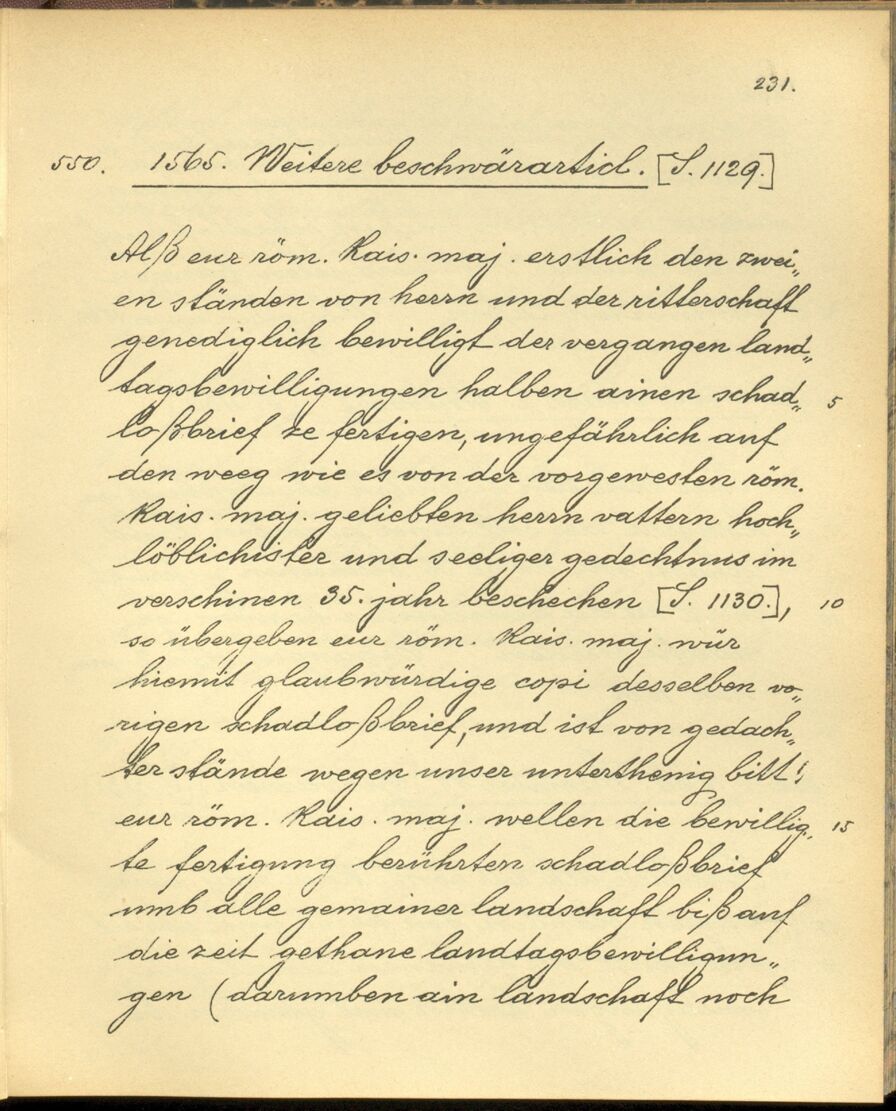 231.
550. 1565. Weitere beschwärarticl. [S. 1129.]
Alß eur röm. Kais. maj. erstlich den zwei„
en ständen von herrn und der ritterschaft
genediglich bewilligt der vergangen land„
tagsbewilligungen halben ainen schad„ 5
loßbrief ze fertigen, ungefährlich auf
den weeg wie es von der vorgewesten röm.
Kais. maj. geliebten herrn vattern hoch„
löblichister und seeliger gedechtnus im
verschinen 35. jahr beschechen [S. 1130.], 10
so übergeben eur röm. Kais. maj. wür
hiemit glaubwürdige copi desselben vo„
rigen schadloßbrief, und ist von gedach„
ter stände wegen unser unterthenig bitt!,
eur röm. Kais. maj. wellen die bewillig„ 15
te fertigung berührten schadloßbrief
umb alle gemainer landschaft biß auf
die zeit gethane landtagsbewilligun„
gen (darumben ain landschaft noch